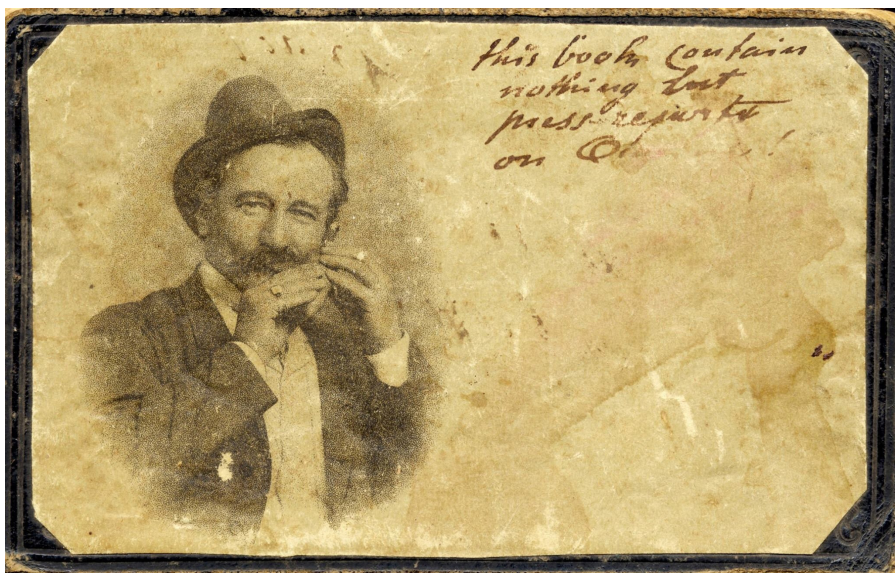 this book contain
nothing but
press reports
on